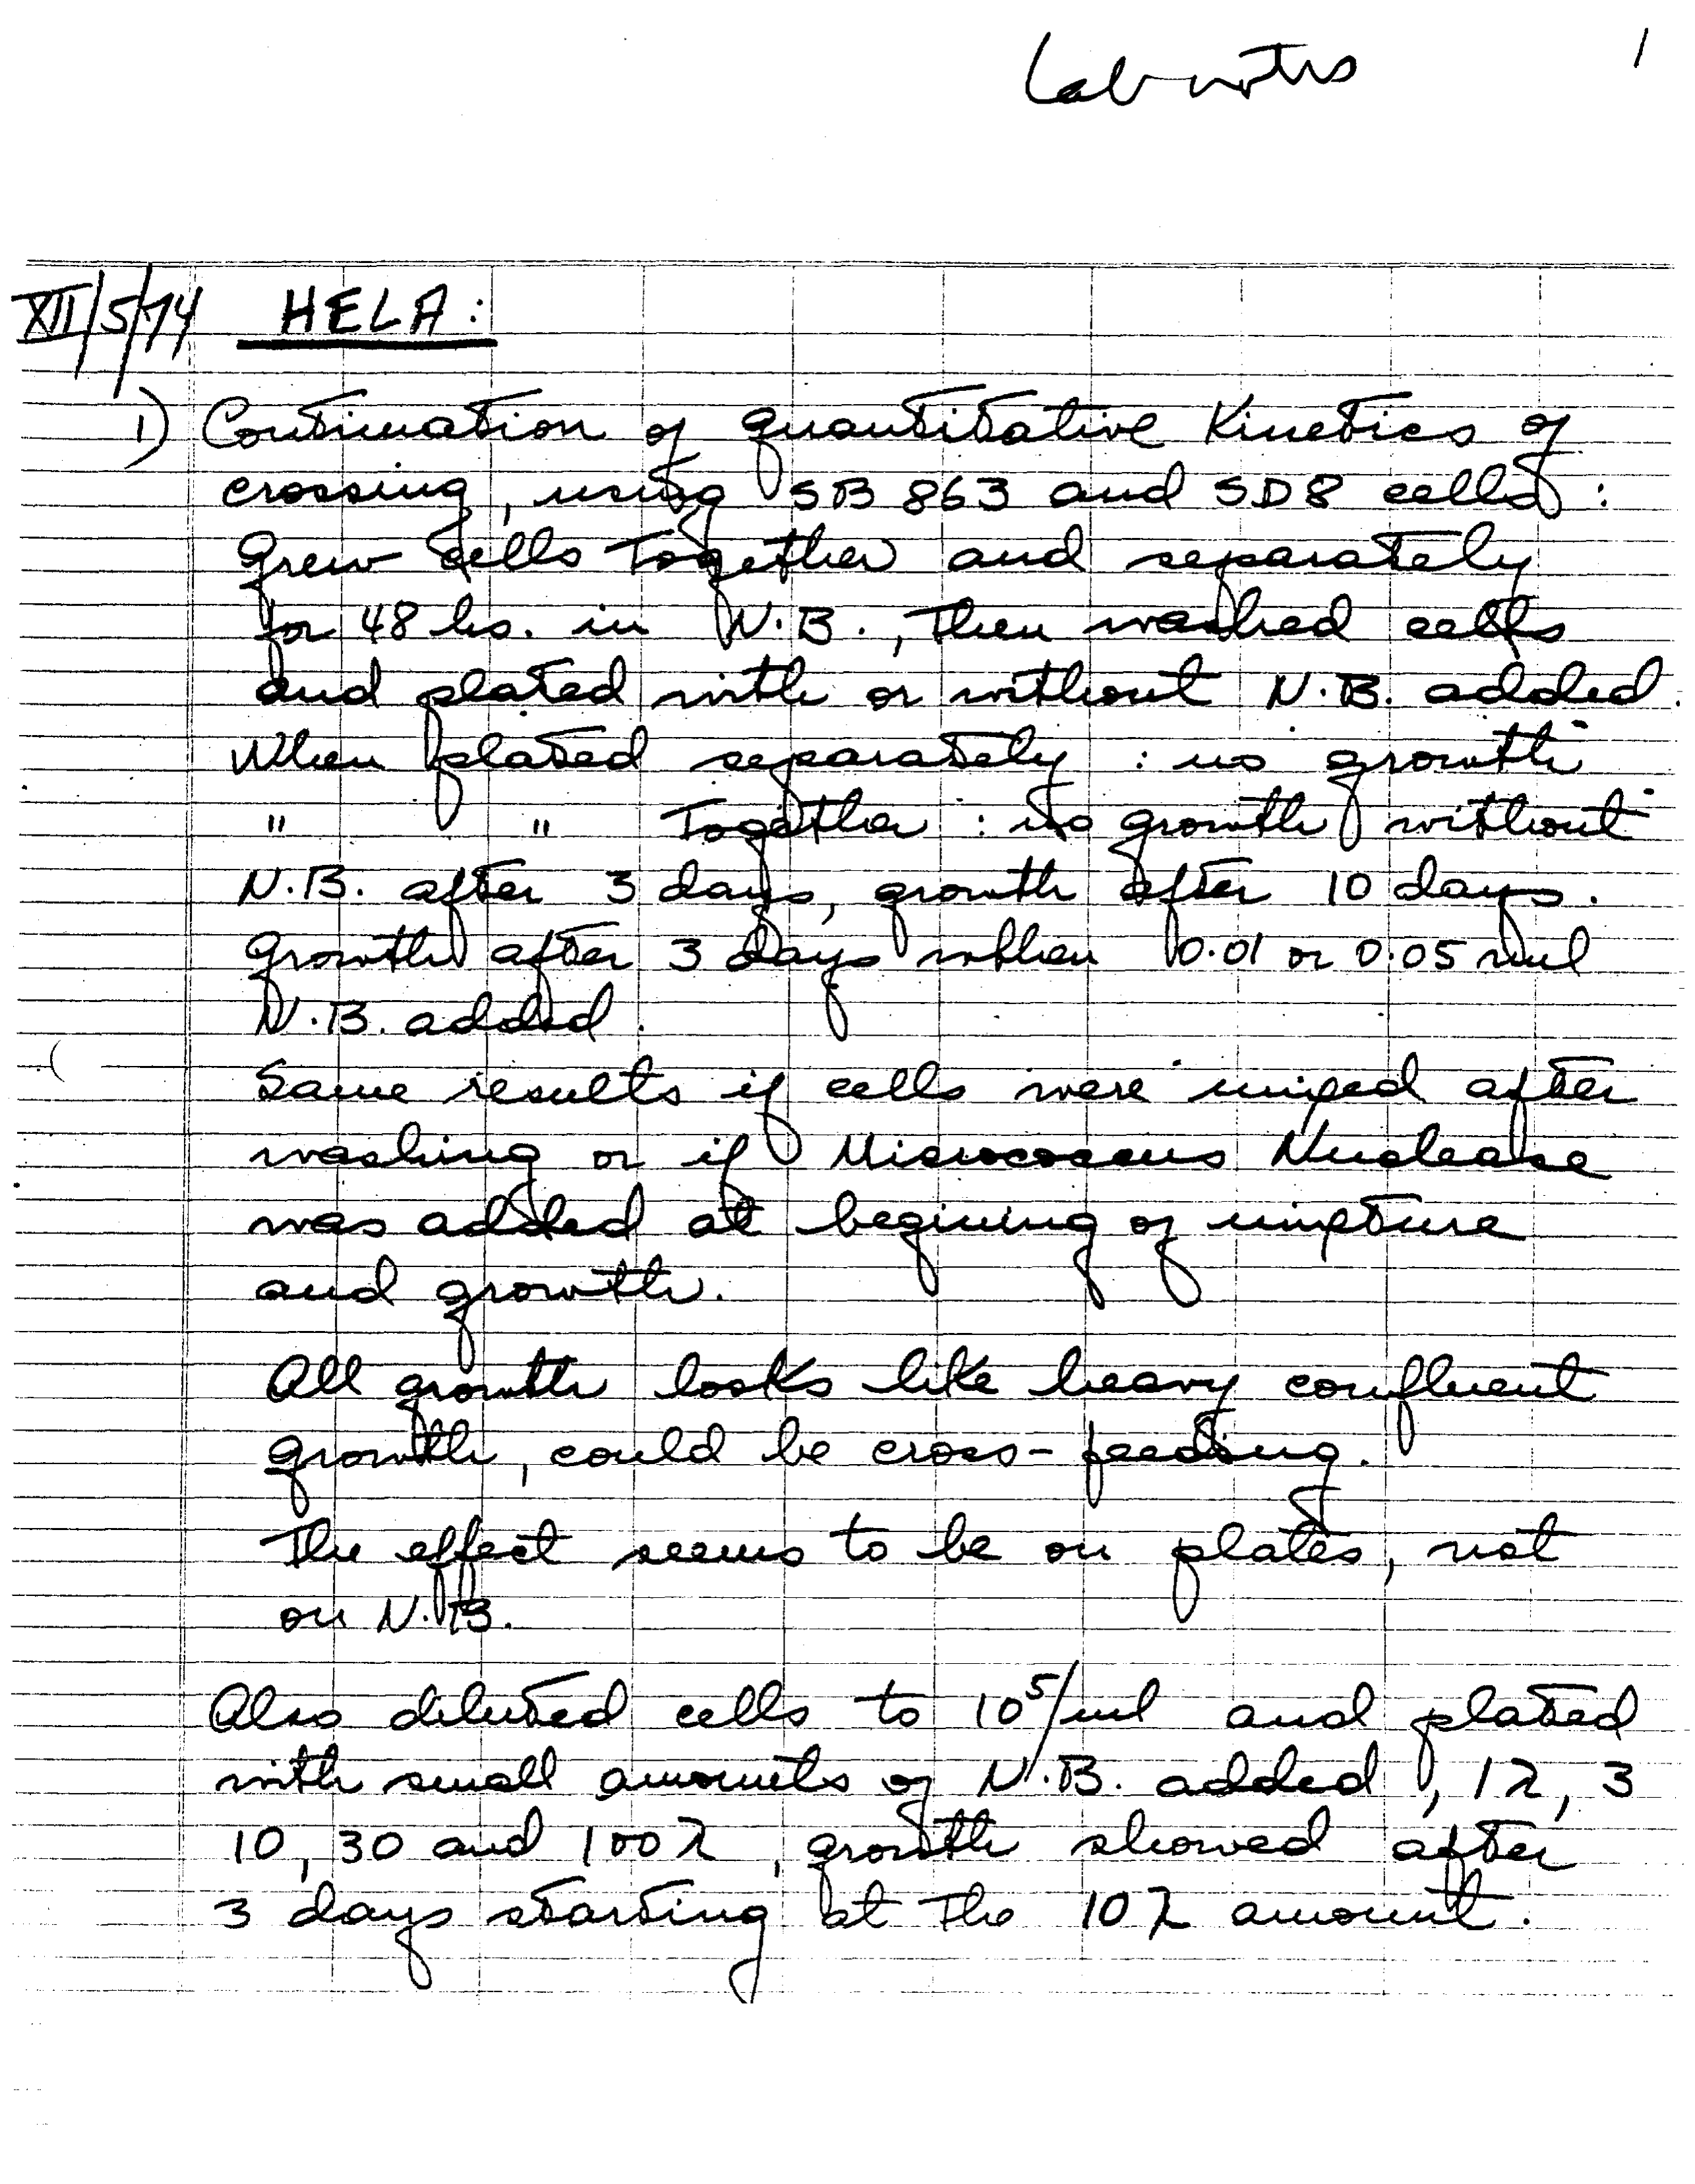 Lab notes
1
XII/5/74 HELA:
1) Continuation of quantitative Kinetics of
crossing, using SB 863 and SD8 cells:
Grew cells together and separately
for 48 hs. in N.B., then washed cells
and plated with or without N.B. added.
When plated separately: no growth
" " Together: no growth without
N.B. after 3 days, growth after 10 days.
Growth after 3 days when 0.01 or 0.05 ml
N.B. added.
Same results if cells were mixed after
washing or if Micrococcus Nuclease
was added at begining of mixture
and growth.
All growth looks like heavy confluent
growth, could be cross-feeding.
The effect seems to be on plates, not
on N.B.
Also diluted cells to 10⁵/ml and plated
with small amounts of N.B. added, 1λ, 3
10, 30 and 100λ, growth showed after
3 days starting at the 10λ amount.